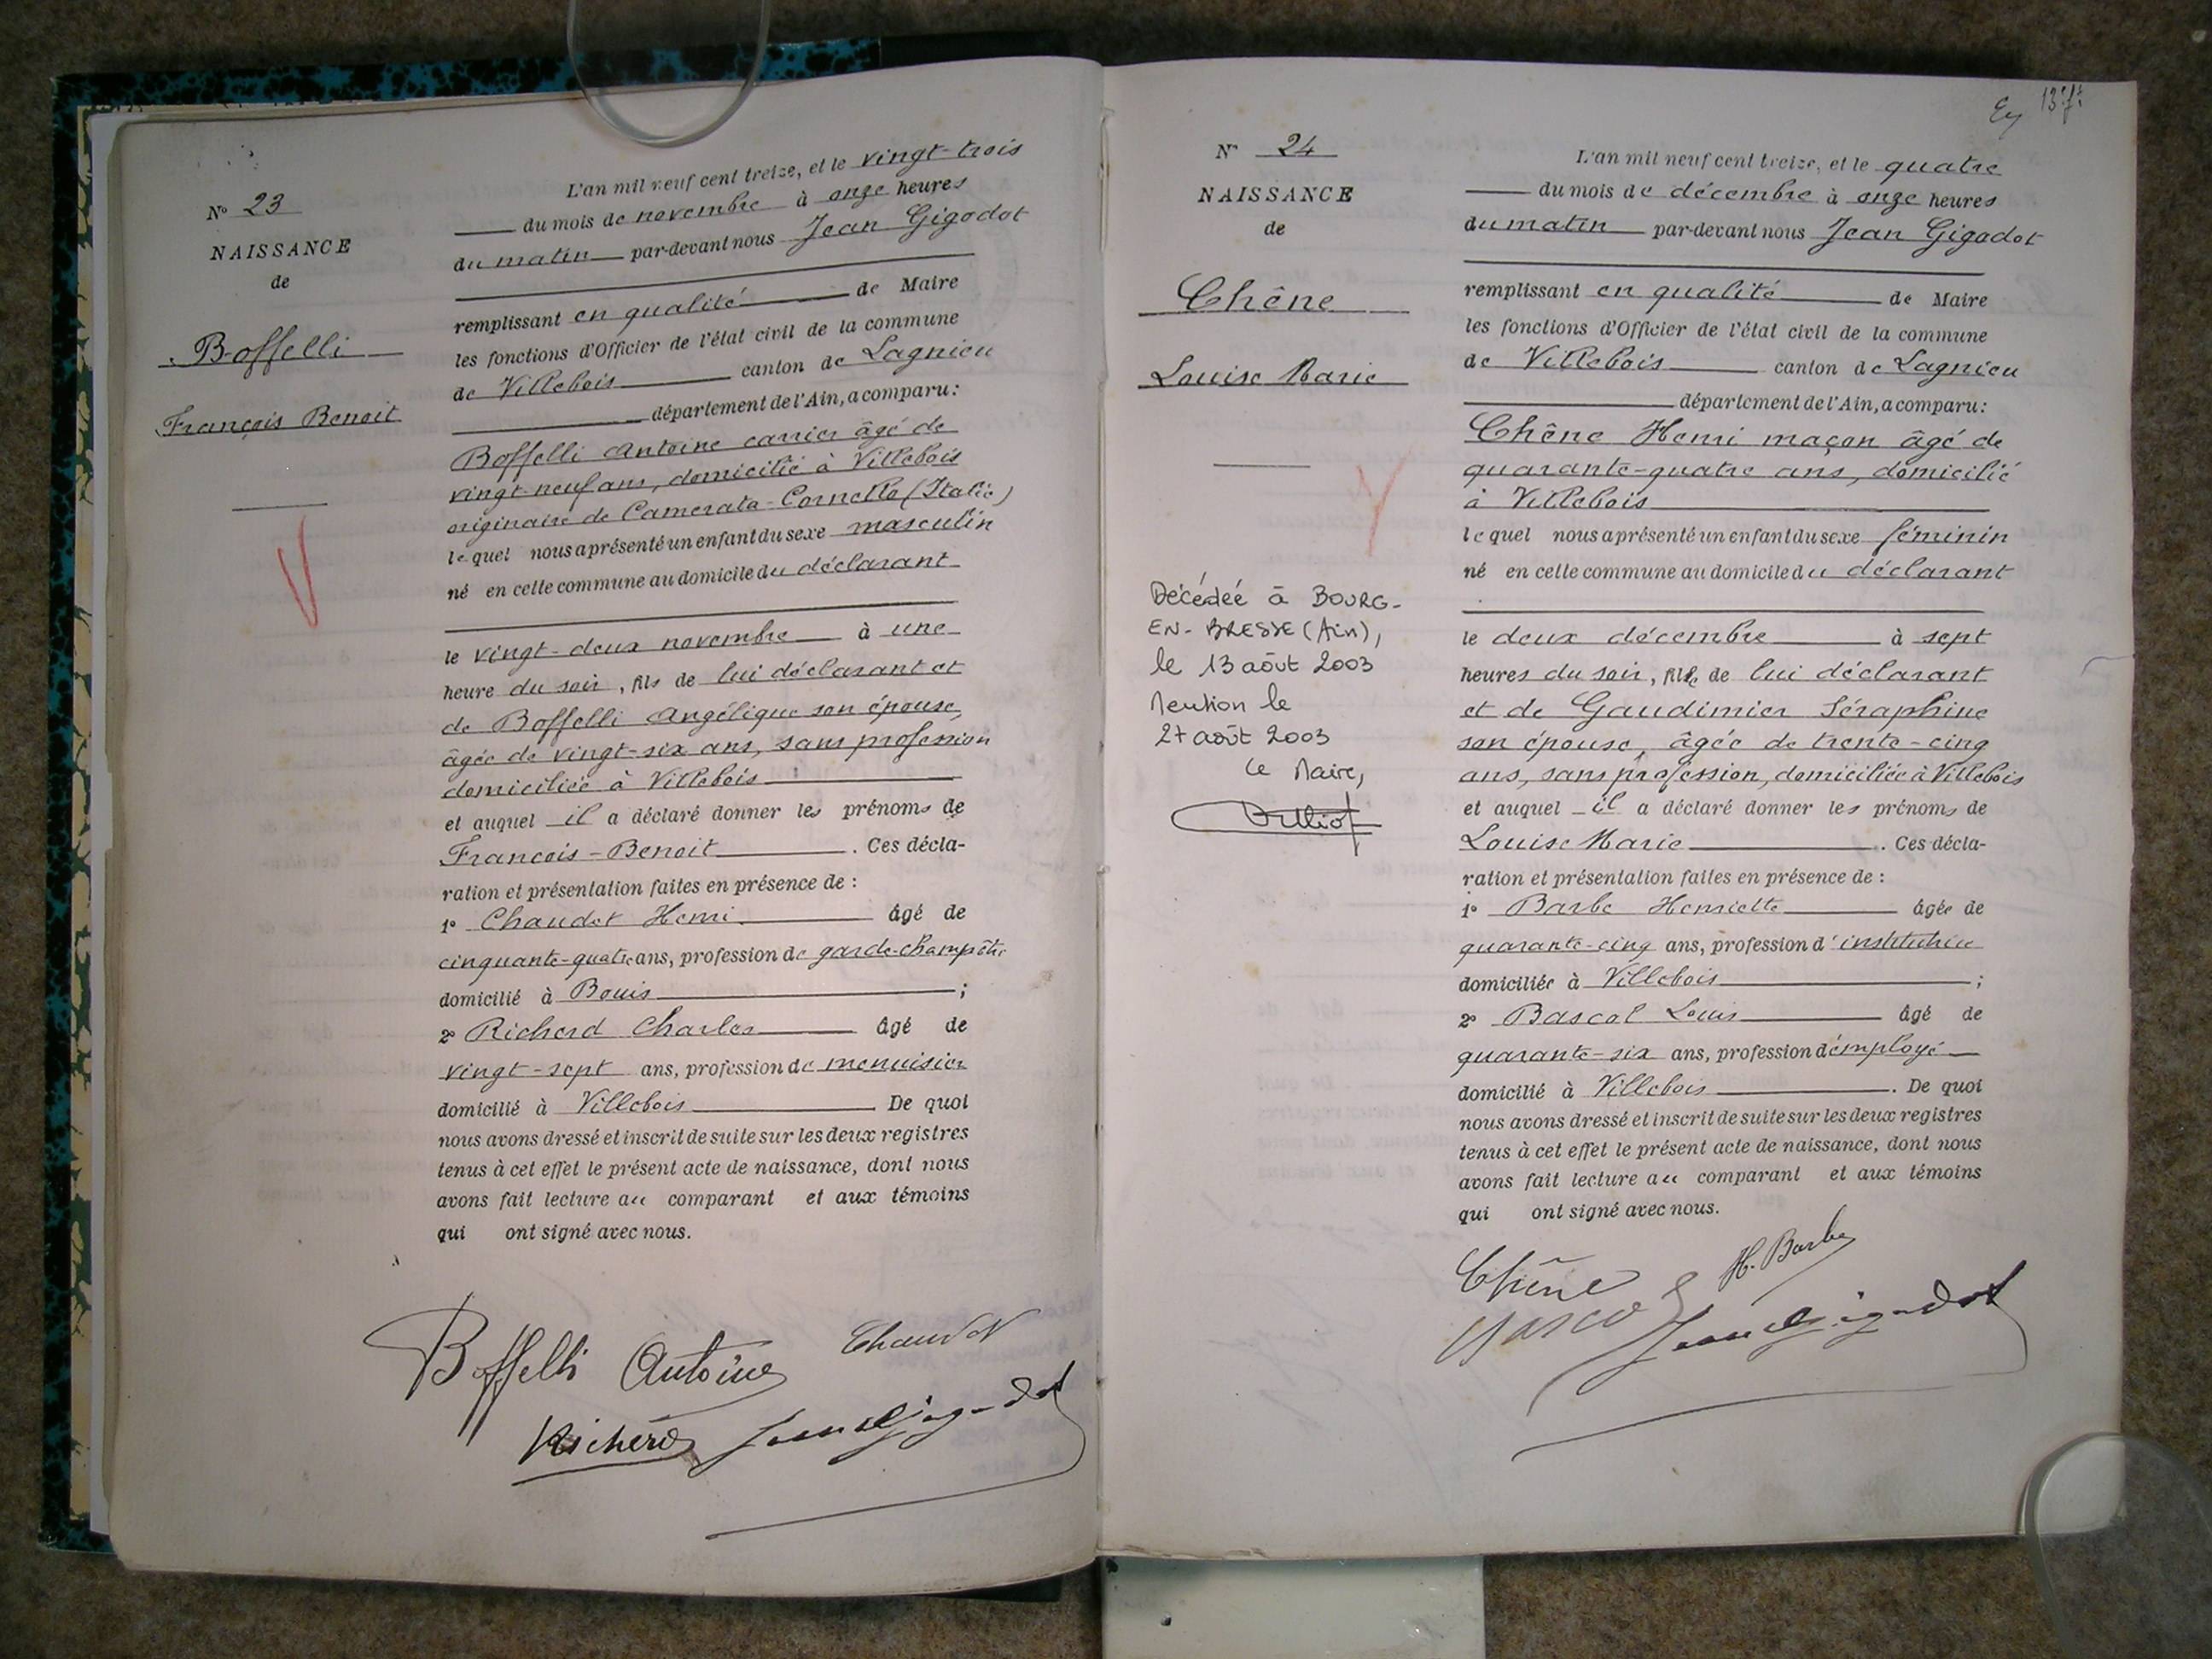 N° 23
NAISSANCE
de
Boffelli
François Benoit
L'an mil neuf cent treize, et le vingt-trois
du mois de novembre à onze heures
du matin par-devant nous Jean Gigodot
remplissant en qualité de Maire
les fonctions d'Officier de l'état civil de la commune
de Villebois canton de Lagnieu
département de l'Ain, a comparu:
Boffelli Antoine carrier âgé de
vingt-neuf ans, domicilié à Villebois
originaire de Camerata-Cornello (Italie)
lequel nous a présenté un enfant du sexe masculin
né en cette commune au domicile du déclarant
le vingt-deux novembre à une
heure du soir, fils de lui déclarant et
de Boffelli Angélique son épouse,
âgée de vingt-six ans, sans profession
domiciliée à Villebois
et auquel il a déclaré donner les prénoms de
François-Benoit. Ces décla-
ration et présentation faites en présence de :
1° Chaudet Henri âgé de
cinquante-quatre ans, profession de garde-champêtre
domicilié à Bouis ;
2° Richerd Charles âgé de
vingt-sept ans, profession de menuisier
domicilié à Villebois De quoi
nous avons dressé et inscrit de suite sur les deux registres
tenus à cet effet le présent acte de naissance, dont nous
avons fait lecture au comparant et aux témoins
qui ont signé avec nous.
Boffelli Antoine Chaudet
Richerd Jean Gigodot
13
N° 24
NAISSANCE
de
Chêne
Louise Marie
Décédée à BOURG-
EN-BRESSE (Ain),
le 13 août 2003
Mention le
27 août 2003
Le Maire,
L'an mil neuf cent treize, et le quatre
du mois de décembre à onze heures
du matin par-devant nous Jean Gigodot
remplissant en qualité de Maire
les fonctions d'Officier de l'état civil de la commune
de Villebois canton de Lagnieu
département de l'Ain, a comparu:
Chêne Henri maçon âgé de
quarante-quatre ans, domicilié
à Villebois
lequel nous a présenté un enfant du sexe féminin
né en cette commune au domicile du déclarant
le deux décembre à sept
heures du soir, fille de lui déclarant
et de Gaudimier Séraphine
son épouse, âgée de trente-cinq
ans, sans profession, domiciliée à Villebois
et auquel il a déclaré donner les prénoms de
Louise Marie. Ces décla-
ration et présentation faites en présence de :
1° Barbe Henriette âgée de
quarante-cinq ans, profession d'institutrice
domiciliée à Villebois ;
2° Bascol Louis âgé de
quarante-six ans, profession d'employé
domicilié à Villebois. De quoi
nous avons dressé et inscrit de suite sur les deux registres
tenus à cet effet le présent acte de naissance, dont nous
avons fait lecture au comparant et aux témoins
qui ont signé avec nous.
Chêne H. Barbe
Bascol Jean Gigodot